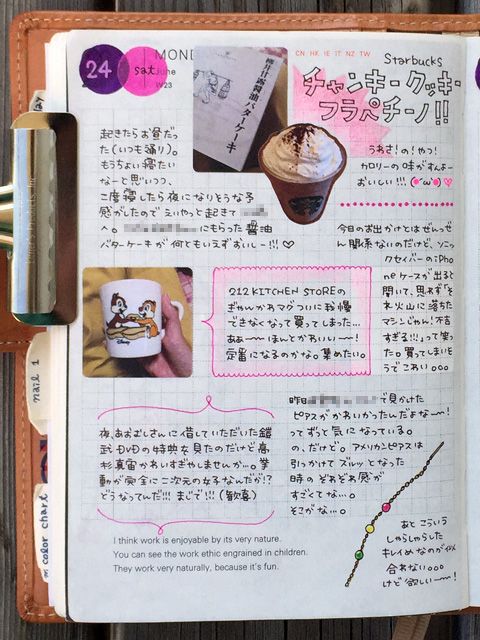 24
sat
MOND
June
W23
CN HK IE IT NZ TW
櫻井甘露醤油バターケーキ
Starbucks
チャンキークッキー
フラペチーノ!!
うわさ!の!やつ!
カロリーの味がすんよー
おいしい!!!
起きたらお昼だっ
た(いつも通り)。
もうちょい寝たい
なーと思いつつ、
二度寝したら夜になりそうな予
感がしたのでえいやっと起きて
へ。 にもらった醤油
バターケーキが何ともいえずおいしー!!! ♡
今日のお出かけとはぜんっぜ
ん関係ないのだけど、ソニッ
クセイバーのiPho
neケースが出ると
聞いて、思わず「そ
れ火山に落ちた
マシンじゃん!不吉
すぎる!!」って笑っ
た。買ってしまいそ
うでこわい。。。
Disney
212 KITCHEN STOREの
ぎゃんかわマグついに我慢
できなくなって買ってしまった…
あぁーーほんとかわいいー!
定番になるのかな。集めたい。
夜、あおむしさんに借していただいた鎧
武DVDの特典を見たのだけど高
杉真宙かわいすぎやしませんか…。挙
動が完全に二次元の女子なんだが!?
どうなってんだ!!! まじで!!!(歓喜)
昨日 で見かけた
ピアスがかわいかったんだよなーー!
ってずっと気になっている。
の、だけど。アメリカンピアスは
引っかけてズルッとなった
時のぞわぞわ感が
すごくてな…。
そこがな…。
あとこういう
しゃらしゃらした
キレイめなのが似
合わない。。。
けど欲しいーー!
I think work is enjoyable by its very nature.
You can see the work ethic engrained in children.
They work very naturally, because it's fun.
nail 1
color chart